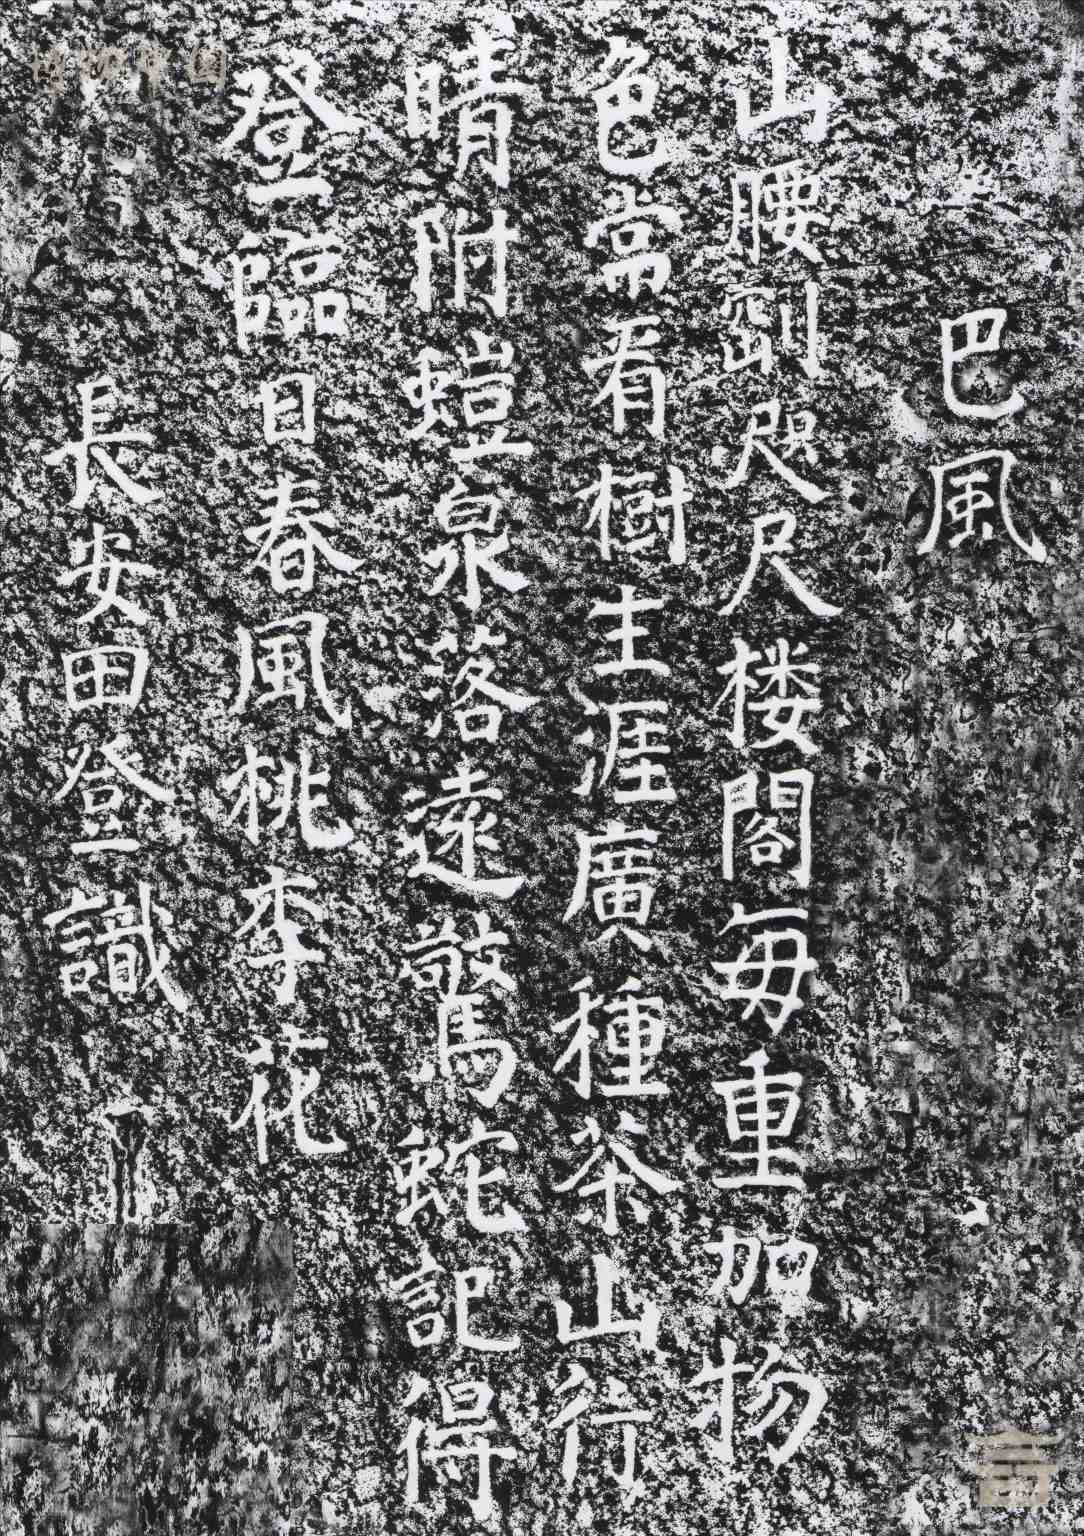 巴風
山腰劄咫尺楼閣毎重加物
色常看樹主涯廣種茶山行
晴附螘泉落遠驚蛇記得
登臨日春風桃李花
長安田登識